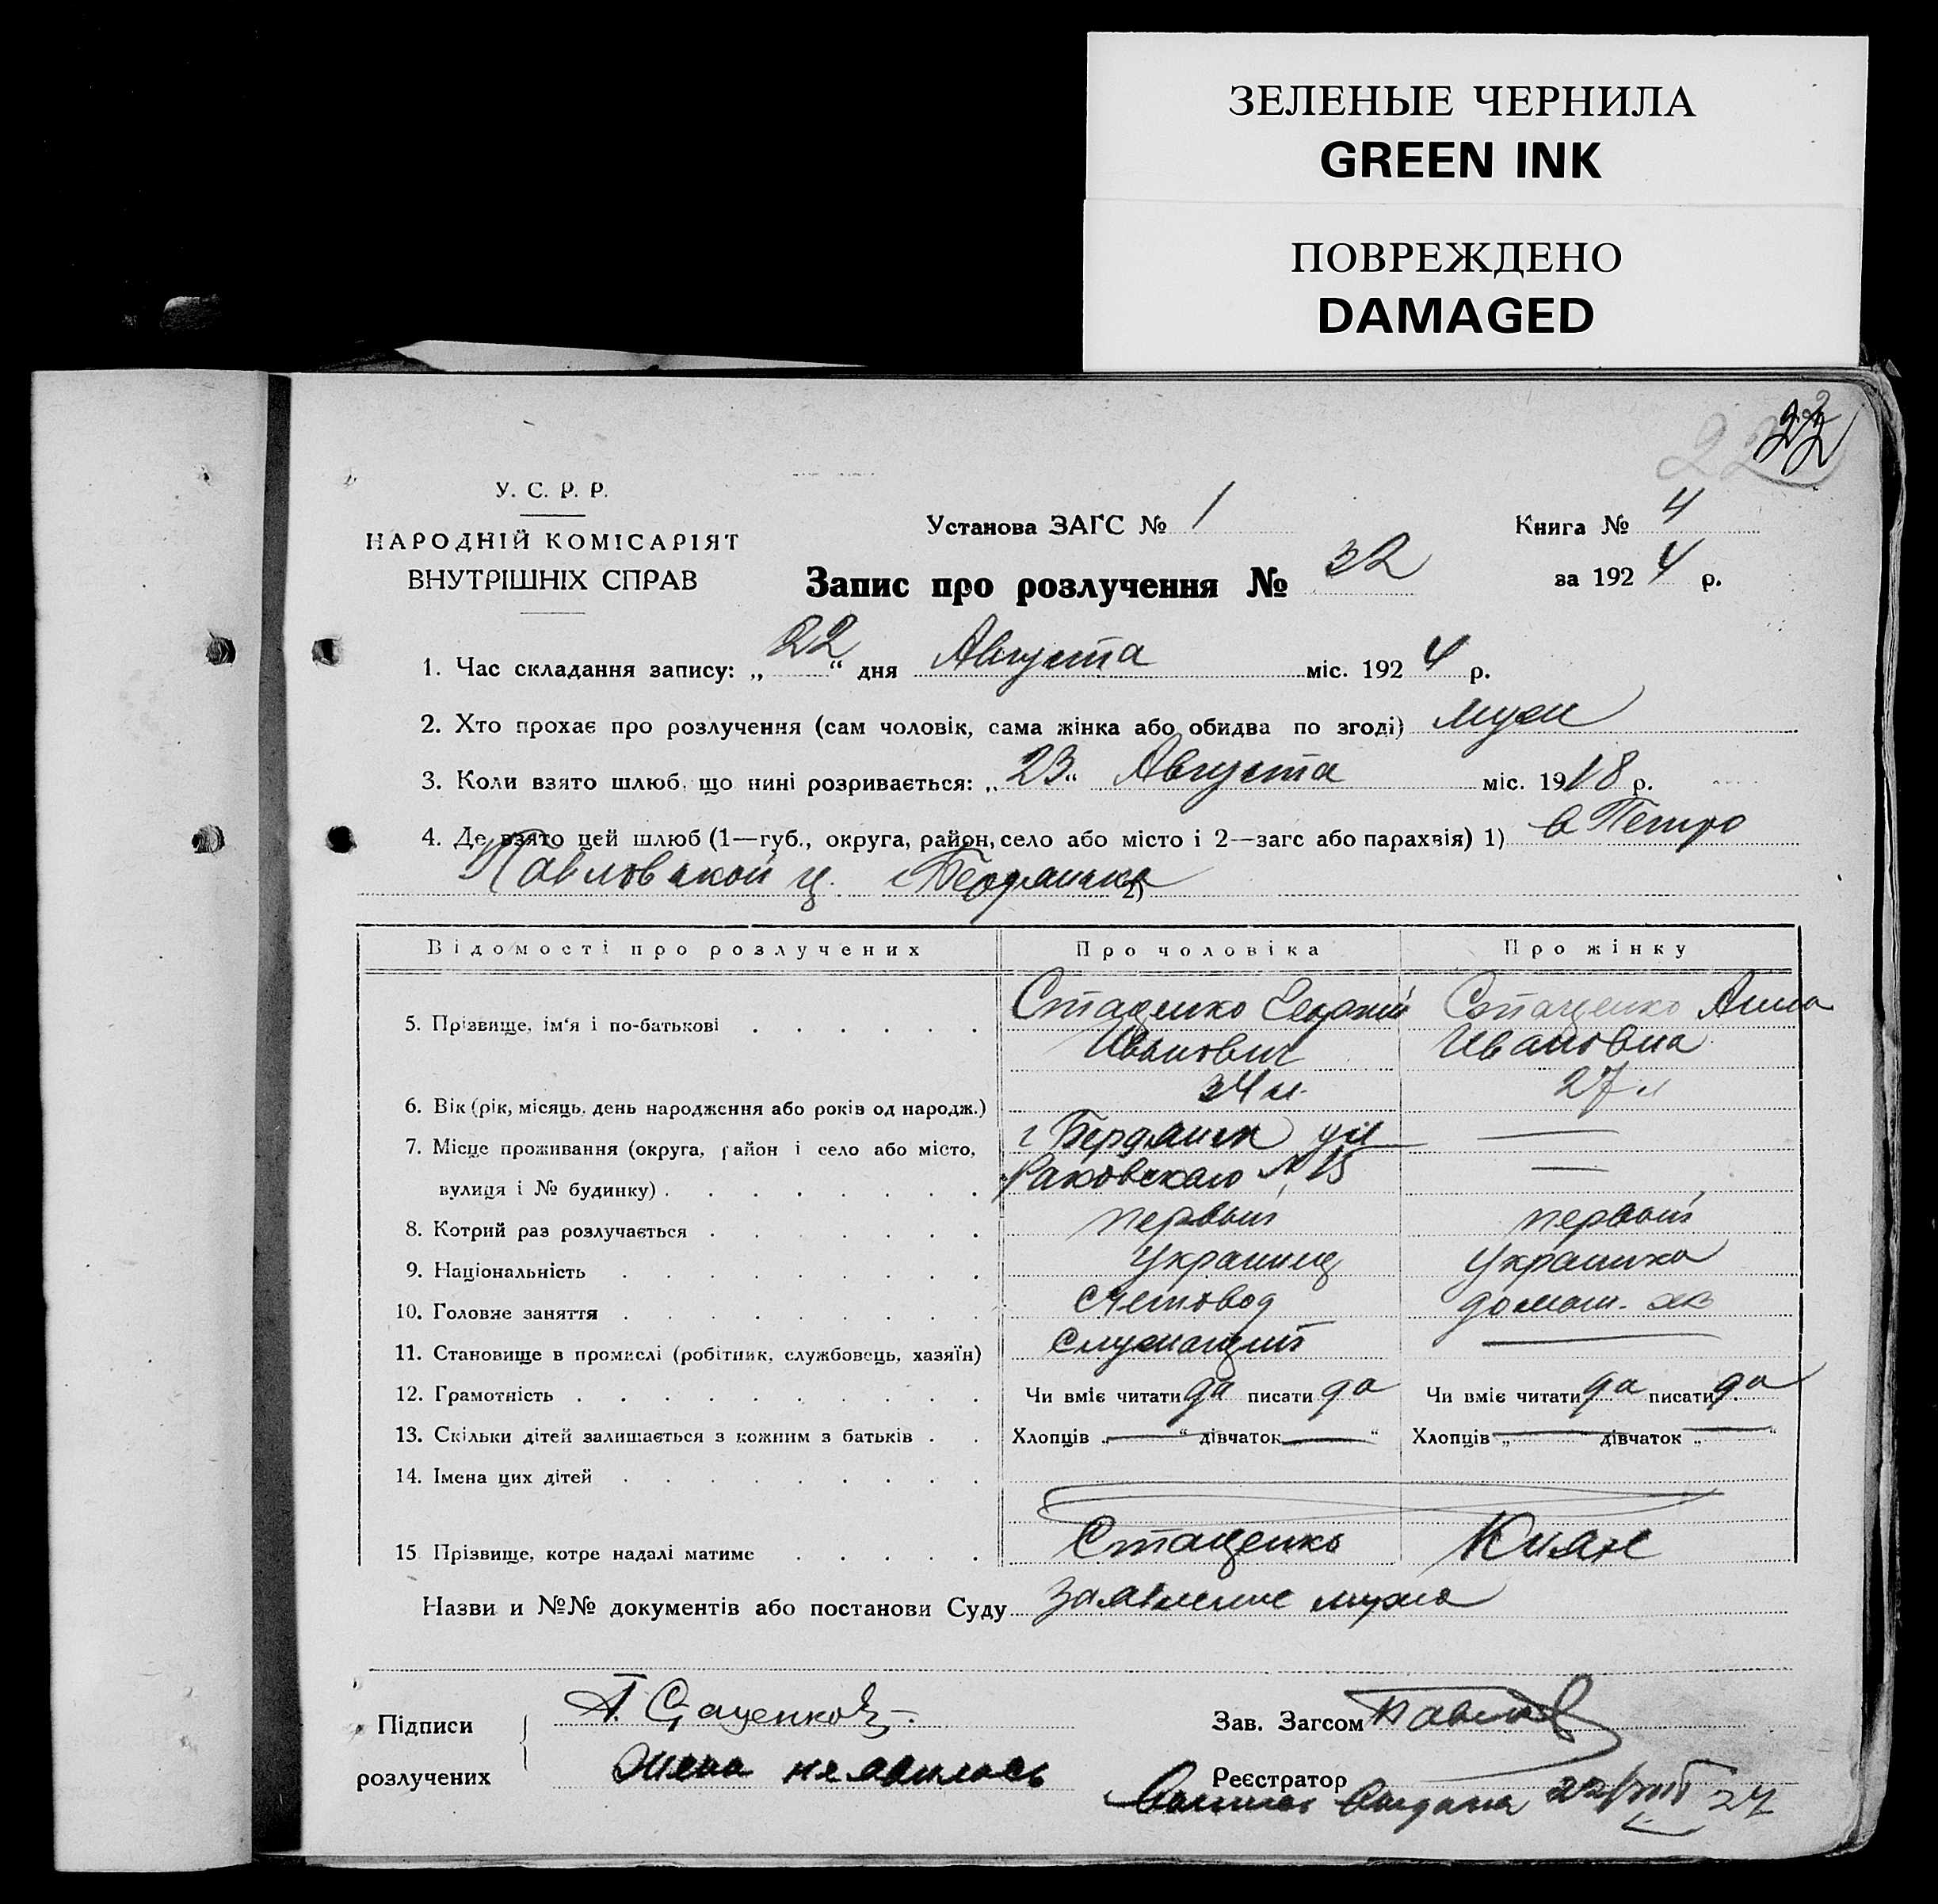 ЗЕЛЕНЫЕ ЧЕРНИЛА
GREEN INK
ПОВРЕЖДЕНО
DAMAGED
22
У. С. Р. Р.
НАРОДНІЙ КОМІСАРІЯТ
ВНУТРІШНІХ СПРАВ
Установа ЗАГС № 1
Книга № 4
Запис про розлучення № 32
за 1924 р.
1. Час складання запису: „22“ дня Августа міс. 1924 р.
2. Хто прохає про розлучення (сам чоловік, сама жінка або обидва по згоді) муж
3. Коли взято шлюб, що нині розривається: „23“ Августа міс. 1918 р.
4. Де взято цей шлюб (1—губ., округа, район, село або місто і 2—загс або парахвія) 1) в Петро
Павловской ц. г Бердянска 2)
Відомості про розлучених Про чоловіка Про жінку
5. Прізвище, ім‘я і по-батькові Стаценко Георгий Стаценко Анна
Иванович Ивановна
6. Вік (рік, місяць, день народження або років од народж.) 34 л. 27 л
7. Місце проживання (округа, район і село або місто, г Бердянск ул —
вулиця і № будинку) Раковскаго № 15 —
8. Котрий раз розлучається первый первый
9. Національність Украинец Украинка
10. Головне заняття Счетовод домаш. хоз
11. Становище в промислі (робітник, службовець, хазяїн) Служащий —
12. Грамотність Чи вміє читати да писати да Чи вміє читати да писати да
13. Скільки дітей залишається з кожним з батьків Хлопців „—“ дівчаток „—“ Хлопців „—“ дівчаток „—“
14. Імена цих дітей
15 Прізвище, котре надалі матиме Стаценко Киян
Назви и №№ документів або постанови Суду Заявление мужа
Підписи розлучених
Г. Стаценко
Жена не явилась
Зав. Загсом Павлов
Реєстратор
выдана 22/VIII 24